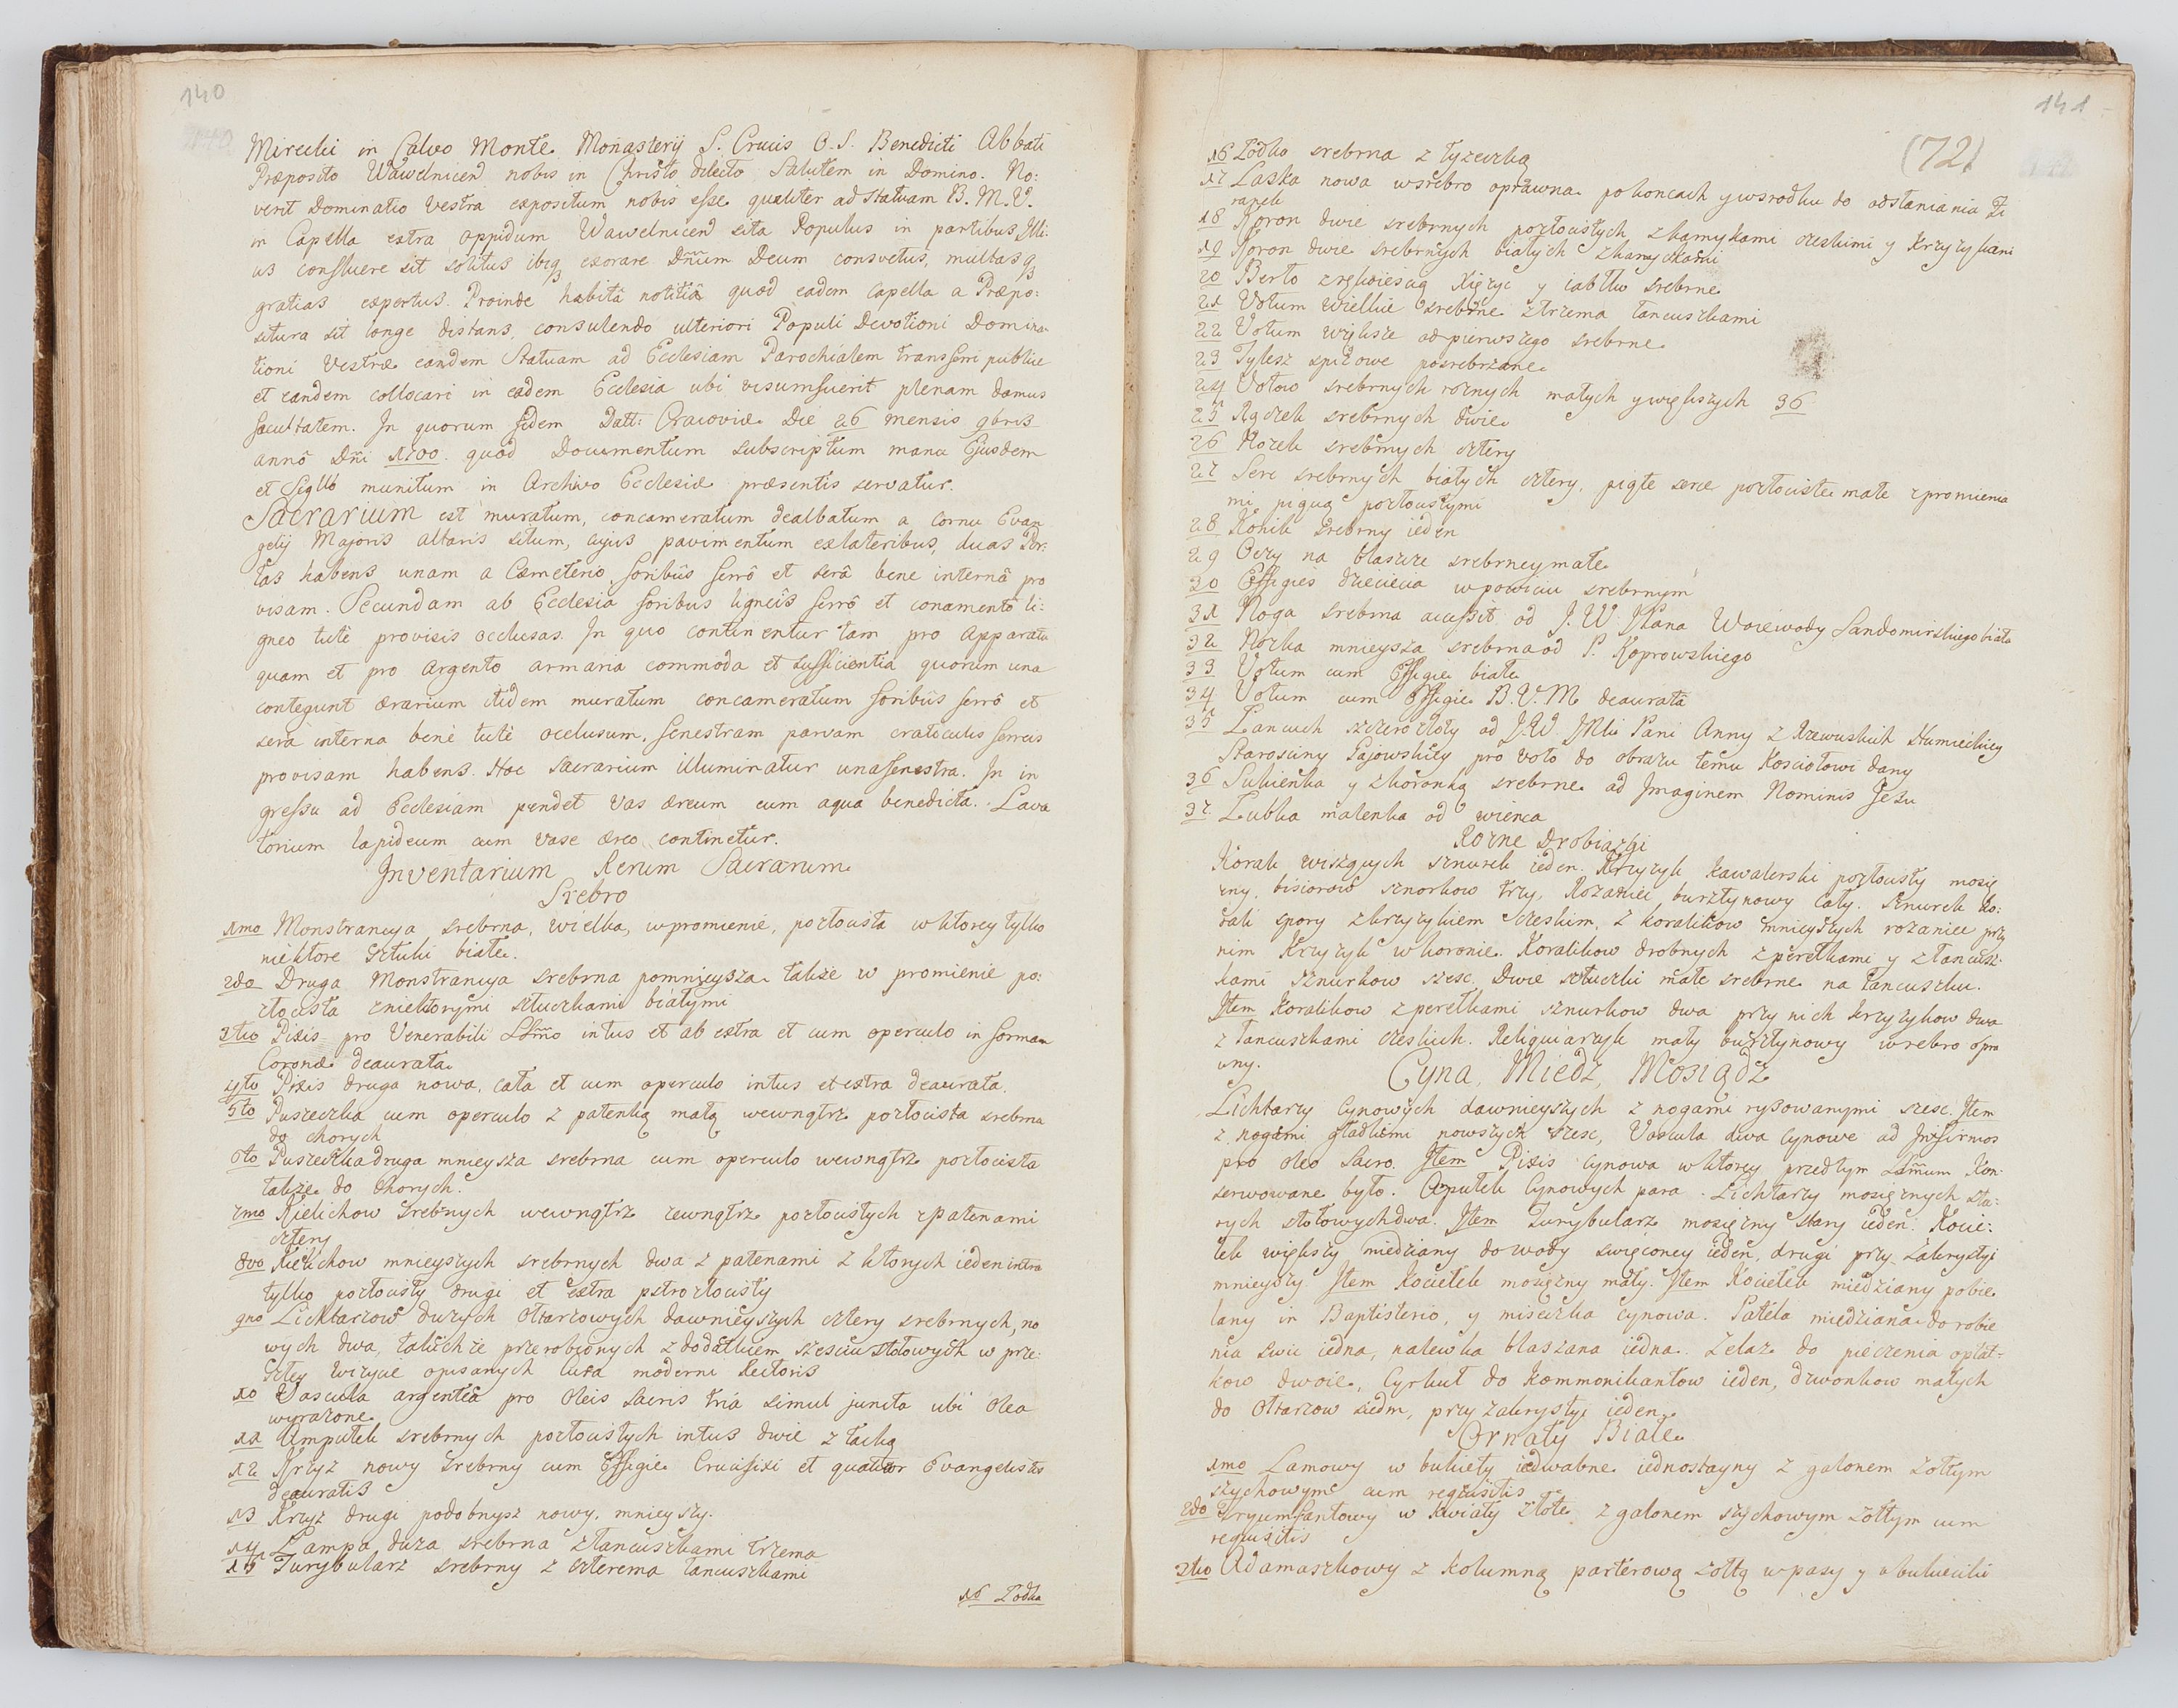 140
Mirecki in Calvo Monte Monasterij S. Crucis O. S. Benedicti Abbati
Præposito Wawelnicen nobis in Christo dilecto Salutem in Domino. No:
verit Dominatio Vestra expositum nobis esse qualiter ad Statuam B. M. V.
in Capella extra oppidum Wawelnicen sita Populus in partibus illi:
us confluere sit solitus ibiq exorare Dñum Deum consvetus, multasq
gratias expertus. Proinde habitâ notitiâ quod eadem Capella a Præpo:
situra sit longe distans, consulendo ulteriori Populi Devotioni Domina
tioni Vestræ eandem Statuam ad Ecclesiam Parochialem transferri publice
et eandem collocari in eadem Ecclesia ubi visum fuerit plenam damus
facultatem. In quorum fidem Datt: Cracoviæ Die 26 mensis 9bris
annô Dñi 1700. quod Documentum subscriptum manu Ejusdem
et Sigllô munitum in Archivo Ecclesiæ præsentis servatur.
Sacrarium est muratum, concameratum dealbatum a Cornu Evan
gelij Majoris altaris situm, cujus pavimentum exlateribus, duas Por:
tas habens unam a Cæmeterio, foribus ferrô et serâ bene internâ pro
visam. Secundam ab Ecclesia foribus ligneis ferrô et conamentô li:
gneo tutè provisis occlusas. In quo continentur tam pro apparatu
quam et pro argento armaria commoda et sufficientia quorum una
contegunt ærarium itidem muratum concameratum foribus ferrô et
sera interna benè tutè occlusum, fenestram parvam craticulis ferreis
provisam habens. Hoc Sacrarium illuminatur una fenestra. In in
gressu ad Ecclesiam pendet Vas æreum cum aqua benedicta. Lava
torium lapideum cum Vase æreo continetur.
Inventarium Rerum Sacrarum
Srebro
1mo Monstrancya srebrna, wielka, wpromienie, pozłocista w ktorey tylko
niektore Sztuki białe.
2do Druga Monstrancya srebrna pomnieysza także w promienie po:
złocista zniektorymi sztuczkami białymi
3tio Pixis pro Venerabili SSmo intus et ab extra et cum operculo in formam
Coronæ deaurata
4to Pixis druga nowa, cała et cum operculo intus et extra deaurata.
5to Puszeczka cum operculo z patenką małą wewnątrz pozłocista srebrna
do chorych
6to Puszeczka druga mnieysza srebrna cum operculo wewnątrz pozłocista
także do Chorych.
7mo Kielichow Srebrnych wewnątrz zewnątrz pozłocistych zPatenami
cztery
8vo Kielichow mnieyszych srebrnych dwa z patenami z ktorych ieden intra
tylko pozłocisty drugi et extra pstrozłocisty
9no Lichtarzow duzych Ołtarzowych dawnieyszych cztery srebrnych, no
wych dwa, takichże przerobionych z dodatkiem szesciu stołowych w prze:
szłey wizycie opisanych cura moderni Rectoris
10 Vascula argentea pro Oleis Sacris tria simul juncta ubi Olea
wyrażone
11 Ampułek srebrnych pozłocistych intus dwie z tacką
12 Krzyż nowy Srebrny cum Effigie Crucifixi et quatuor Evangelistis
deauratis
13 Krzyż drugi podobnysz nowy, mnieyszy.
14 Lampa duza srebrna złancuszkami trzema
15 Turybularz srebrny z czterema łancuszkami
16 Łodka
141
(72)
16 Łodka srebrna z łyzeczką
17 Laska nowa wsrebro oprawna pokoncach ywsrodku do odsłaniania Fi
ranek
18 Koron dwie srebrnych pozłocistych zkamykami czeskimi y Krzyzykami
19 Koron dwie srebrnych białych zkamyckami
20 Berło zrękoiescią Xięzyc y iabłko srebrne
21 Votum wielkie srebrne ztrzema łancuszkami
22 Votum większe odpierwszego srebrne
23 Tylesz spizowe posrebrzane
24 Votow srebrnych roznych małych ywiększych 36
25 Rączek srebrnych dwie
26 Nozek srebrnych cztery
27 Serc srebrnych białych cztery, piąte serce pozłociste małe zpromienia
mi pigną pozłocistymi
28 Konik srebrny ieden
29 Oczy na blaszce srebrneymałe
30 Effigies dziecięcia wpowiciu srebrnym
31 Noga srebrna accessit od J. W. Pana Woiewody Sandomirskiego biała
32 Nozka mnieysza srebrna od P. Koprowskiego
33 Votum cum Effigie białe
34 Votum cum Effigie B. V. M. deaurata
35 Łancuch szczerozłoty od J. W. JMci Pani Anny z Rzewuskich Humieckiey
Starosciny Gajowskiey pro voto do obrazu temu Kosciołowi dany
36 Sukienka y zkoronką srebrne ad Imaginem Nominis Jesu
37 Łubka malenka od wienca
Rozne Drobiazgi
Korali wiszących sznurek ieden. Krzyzyk Kawalerski pozłocisty mosię
zny, bisiorow sznorkow trzy, Rozaniec bursztynowy cały. Sznurek ko:
rali spory zkrzyzykiem Czeskim, z koralikow mnieyszych rozaniec przy
nim Krzyzyk w koronie. Koralikow drobnych zperełkami y złancusz:
kami sznurkow szesc. Dwie sztuczki małe srebrne na łancuszku.
Item Koralikow zperełkami sznurkow dwa przy nich krzyzykow dwa
z łancuszkami czeskich. Reliquiarzyk mały bursztynowy wsrebro opra
wny.
Cyna, Miedź, Mosiądz
Lichtarzy Cynowych dawnieyszych z nogami rysowanymi szesc. Item
z nogami gładkiemi nowszych szesc, Vascula dwa Cynowe ad Infirmos
pro oleo Sacro. Item Pixis Cynowa w ktorey przedtym SSmum Kon:
serwowane było. Ampułek Cynowych para. Lichtarzy mosięznych sta:
rych stołowych dwa. Item Turybularz mosięzny stary ieden. Kocie:
łek większy miedziany do wody swięconey ieden, drugi przy zakrystyi
mnieyszy. Item Kociełek mosięzny mały. Item Kociełek miedziany pobie
lany in Baptisterio, y miseczka cynowa. Patela miedziana do robie
nia swic iedna, nalewka blaszana iedna. Zelaz do pieczenia opłat:
kow dwoie, Cyrkuł do Kommonikantow ieden, dzwonkow małych
do Ołtarzow siedm, przy zakrystyi ieden.
Ornaty Białe
1mo Lamowy w bukiety iedwabne iednostayny z galonem zołtym
szychowym cum requisitis
2do Tryumfantowy w Kwiaty złote z galonem szychowym zołtym cum
requisitis
3tio Adamaszkowy z Kolumną parterową zołtą wpasy y